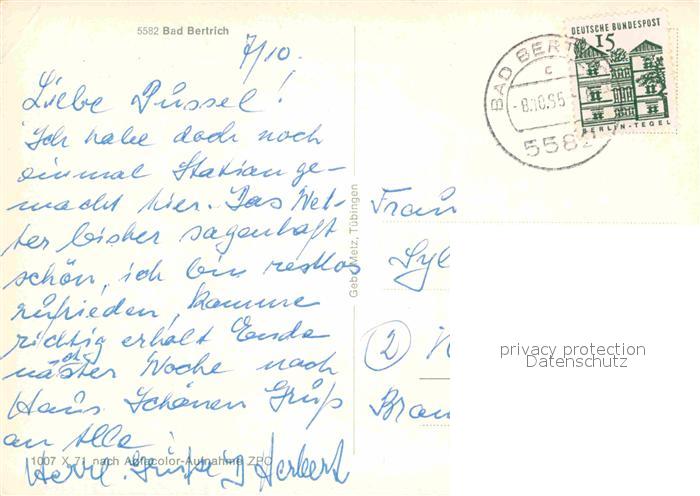 5582 Bad Bertrich
7/10.
Liebe Pussel!
Ich habe doch noch
einmal Station ge-
macht hier. Das Wet-
ter bisher sagenhaft
schön, ich bin restlos
zufrieden, komme
richtig erholt Ende
nächster Woche nach
Haus. Schönen Gruß
an Alle
Herzl. Grüße Herbert
1007 X 71 nach Agfacolor-Aufnahme ZPC
Gebr. Metz, Tübingen
DEUTSCHE BUNDESPOST
15
BERLIN-TEGEL
BAD BERT
c
-8.10.
5582
Frau
Syl
(2)
Brau
privacy protection
Datenschutz